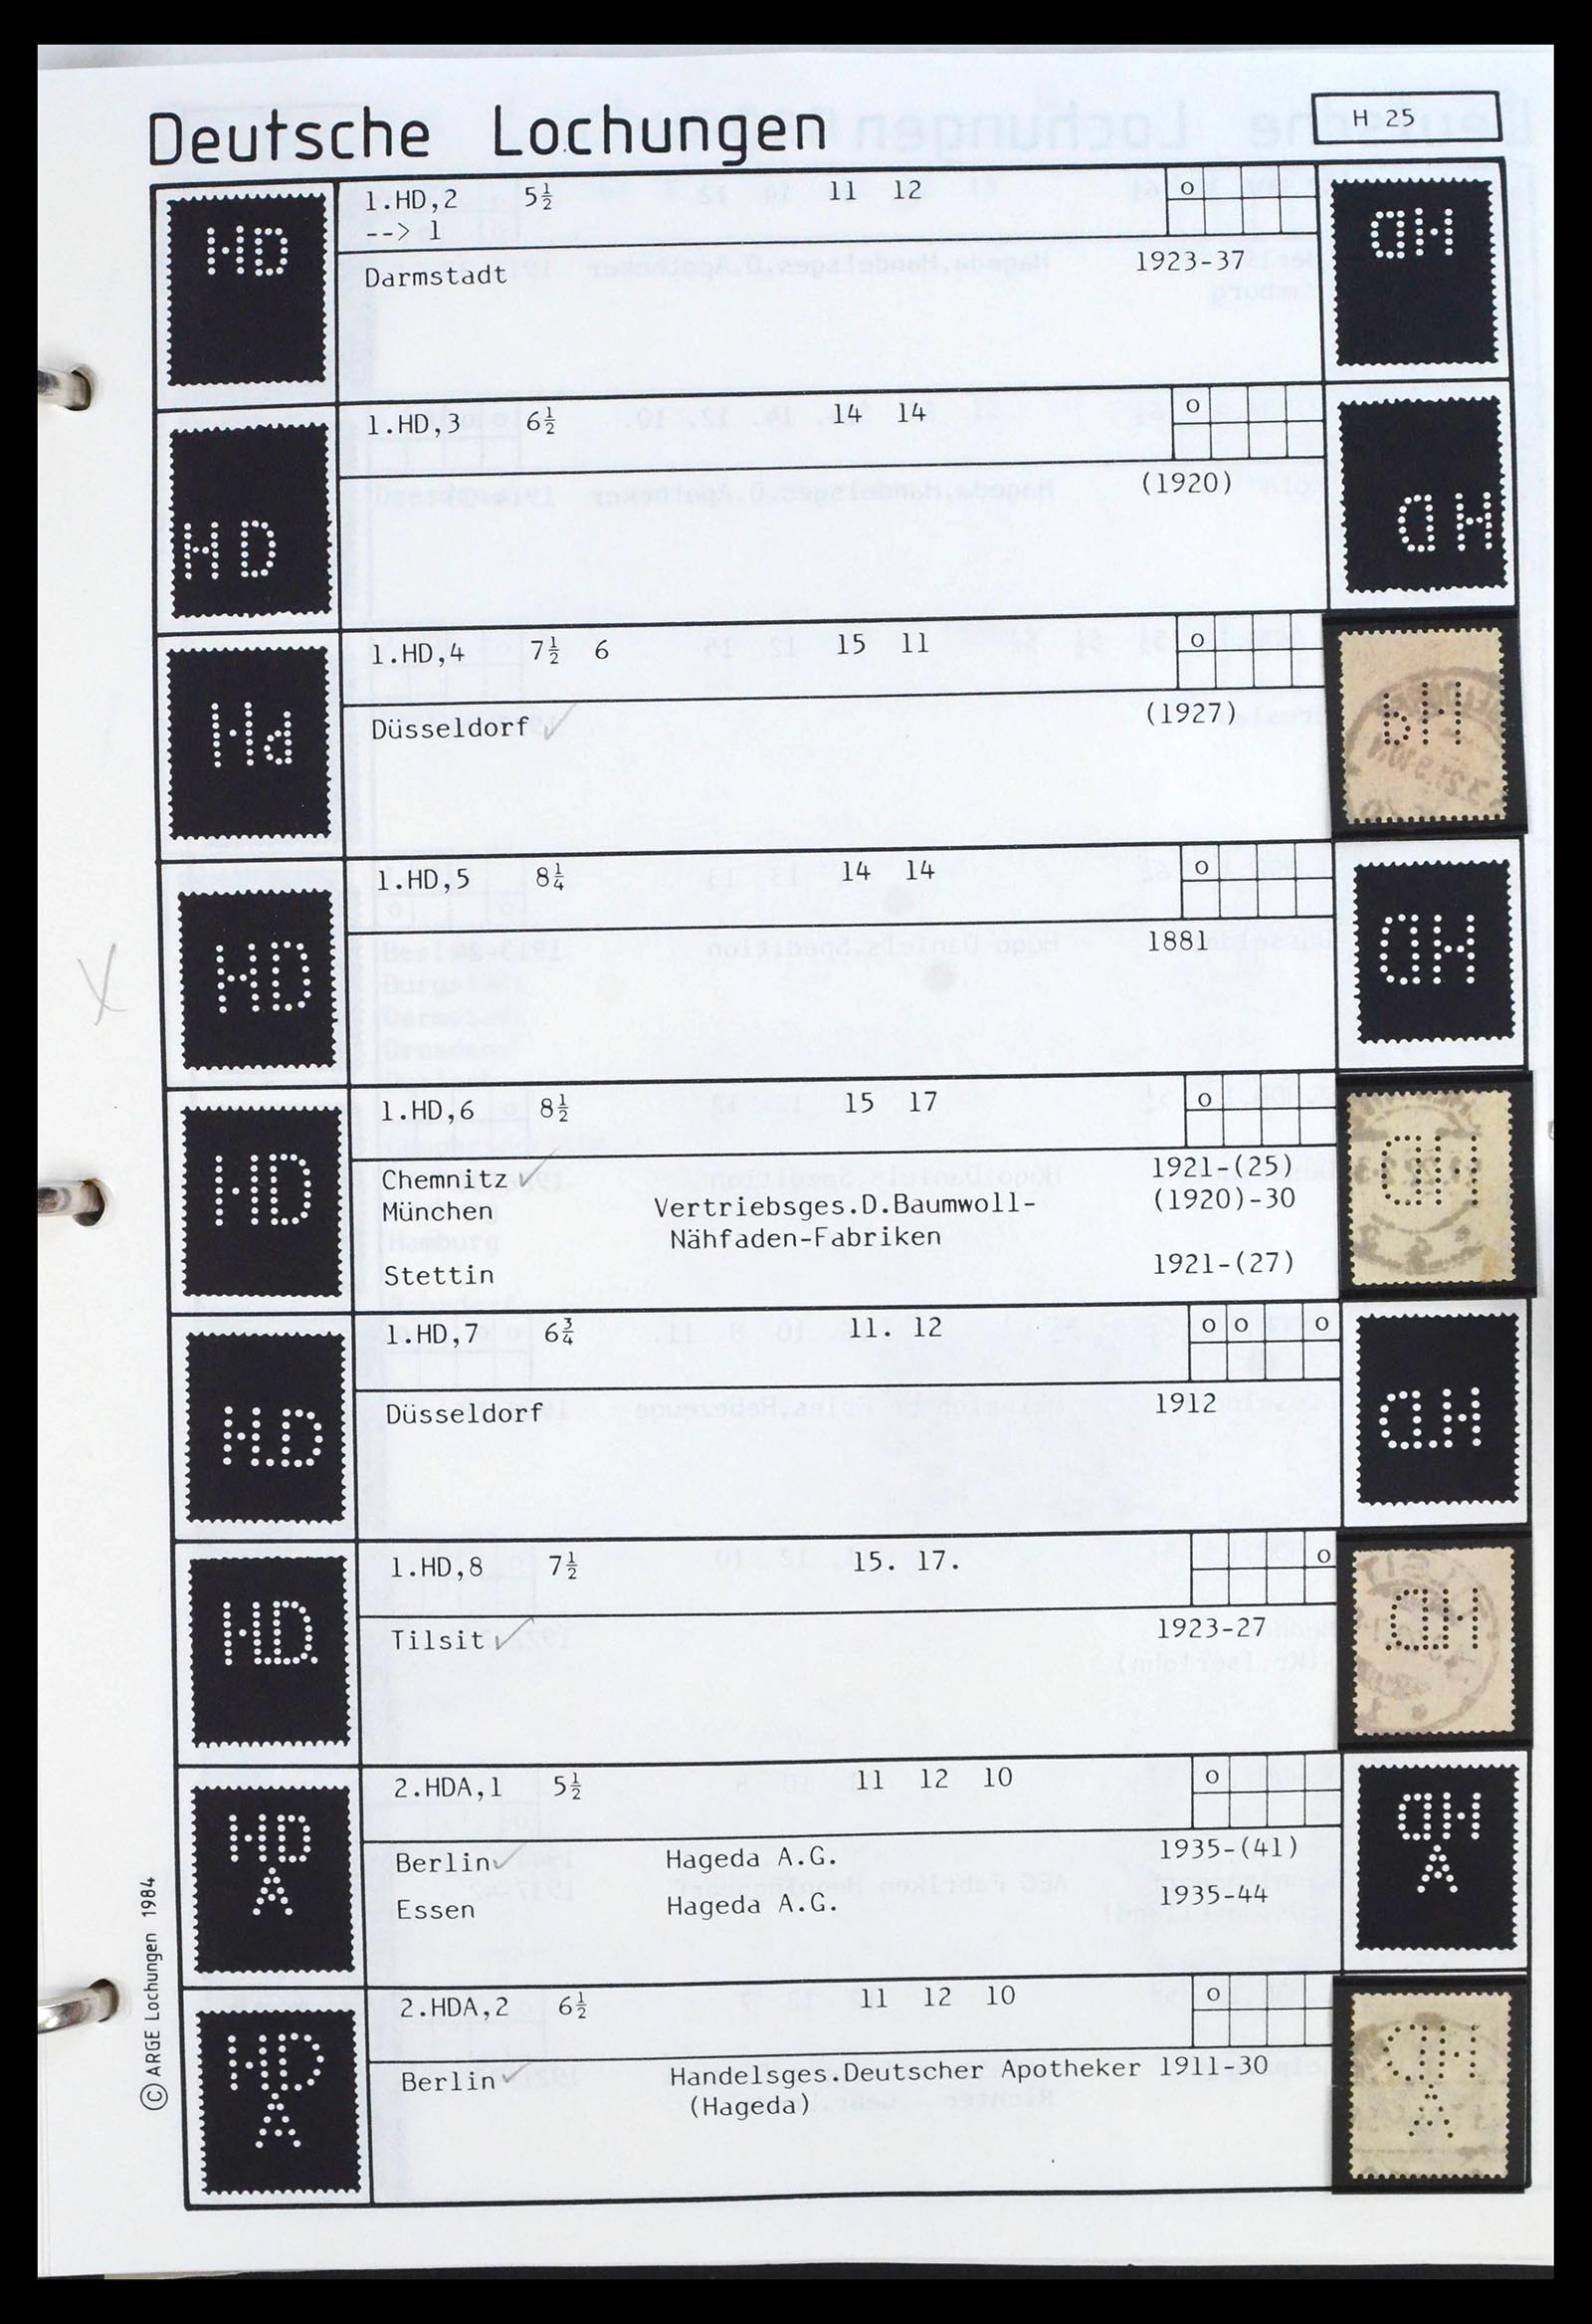 Deutsche Lochungen
H 25
HD
1.HD,2 5½ 11 12 o
--> 1
Darmstadt 1923-37
HD
1.HD,3 6½ 14 14 o
(1920)
Hd
1.HD,4 7½ 6 15 11 o
Düsseldorf (1927)
HD
1.HD,5 8¼ 14 14 o
1881
HD
1.HD,6 8½ 15 17 o
Chemnitz 1921-(25)
München Vertriebsges.D.Baumwoll- (1920)-30
Nähfaden-Fabriken
Stettin 1921-(27)
H.D
1.HD,7 6¾ 11. 12 o o o
Düsseldorf 1912
HD.
1.HD,8 7½ 15. 17. o
Tilsit 1923-27
HD
A
2.HDA,1 5½ 11 12 10 o
Berlin Hageda A.G. 1935-(41)
Essen Hageda A.G. 1935-44
HD
A
2.HDA,2 6½ 11 12 10 o
Berlin Handelsges.Deutscher Apotheker 1911-30
(Hageda)
© ARGE Lochungen 1984